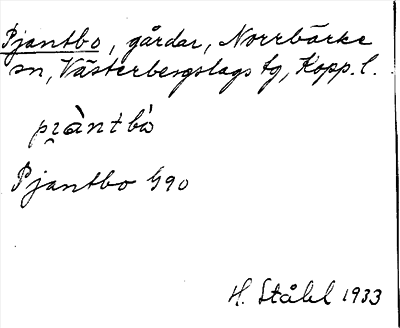 Pjantbo, gårdar, Norrbärke
sn, Västerbergslags tg, Kopp. l.
pi̯àntbò
Pjantbo 490
H. Ståhl 1933